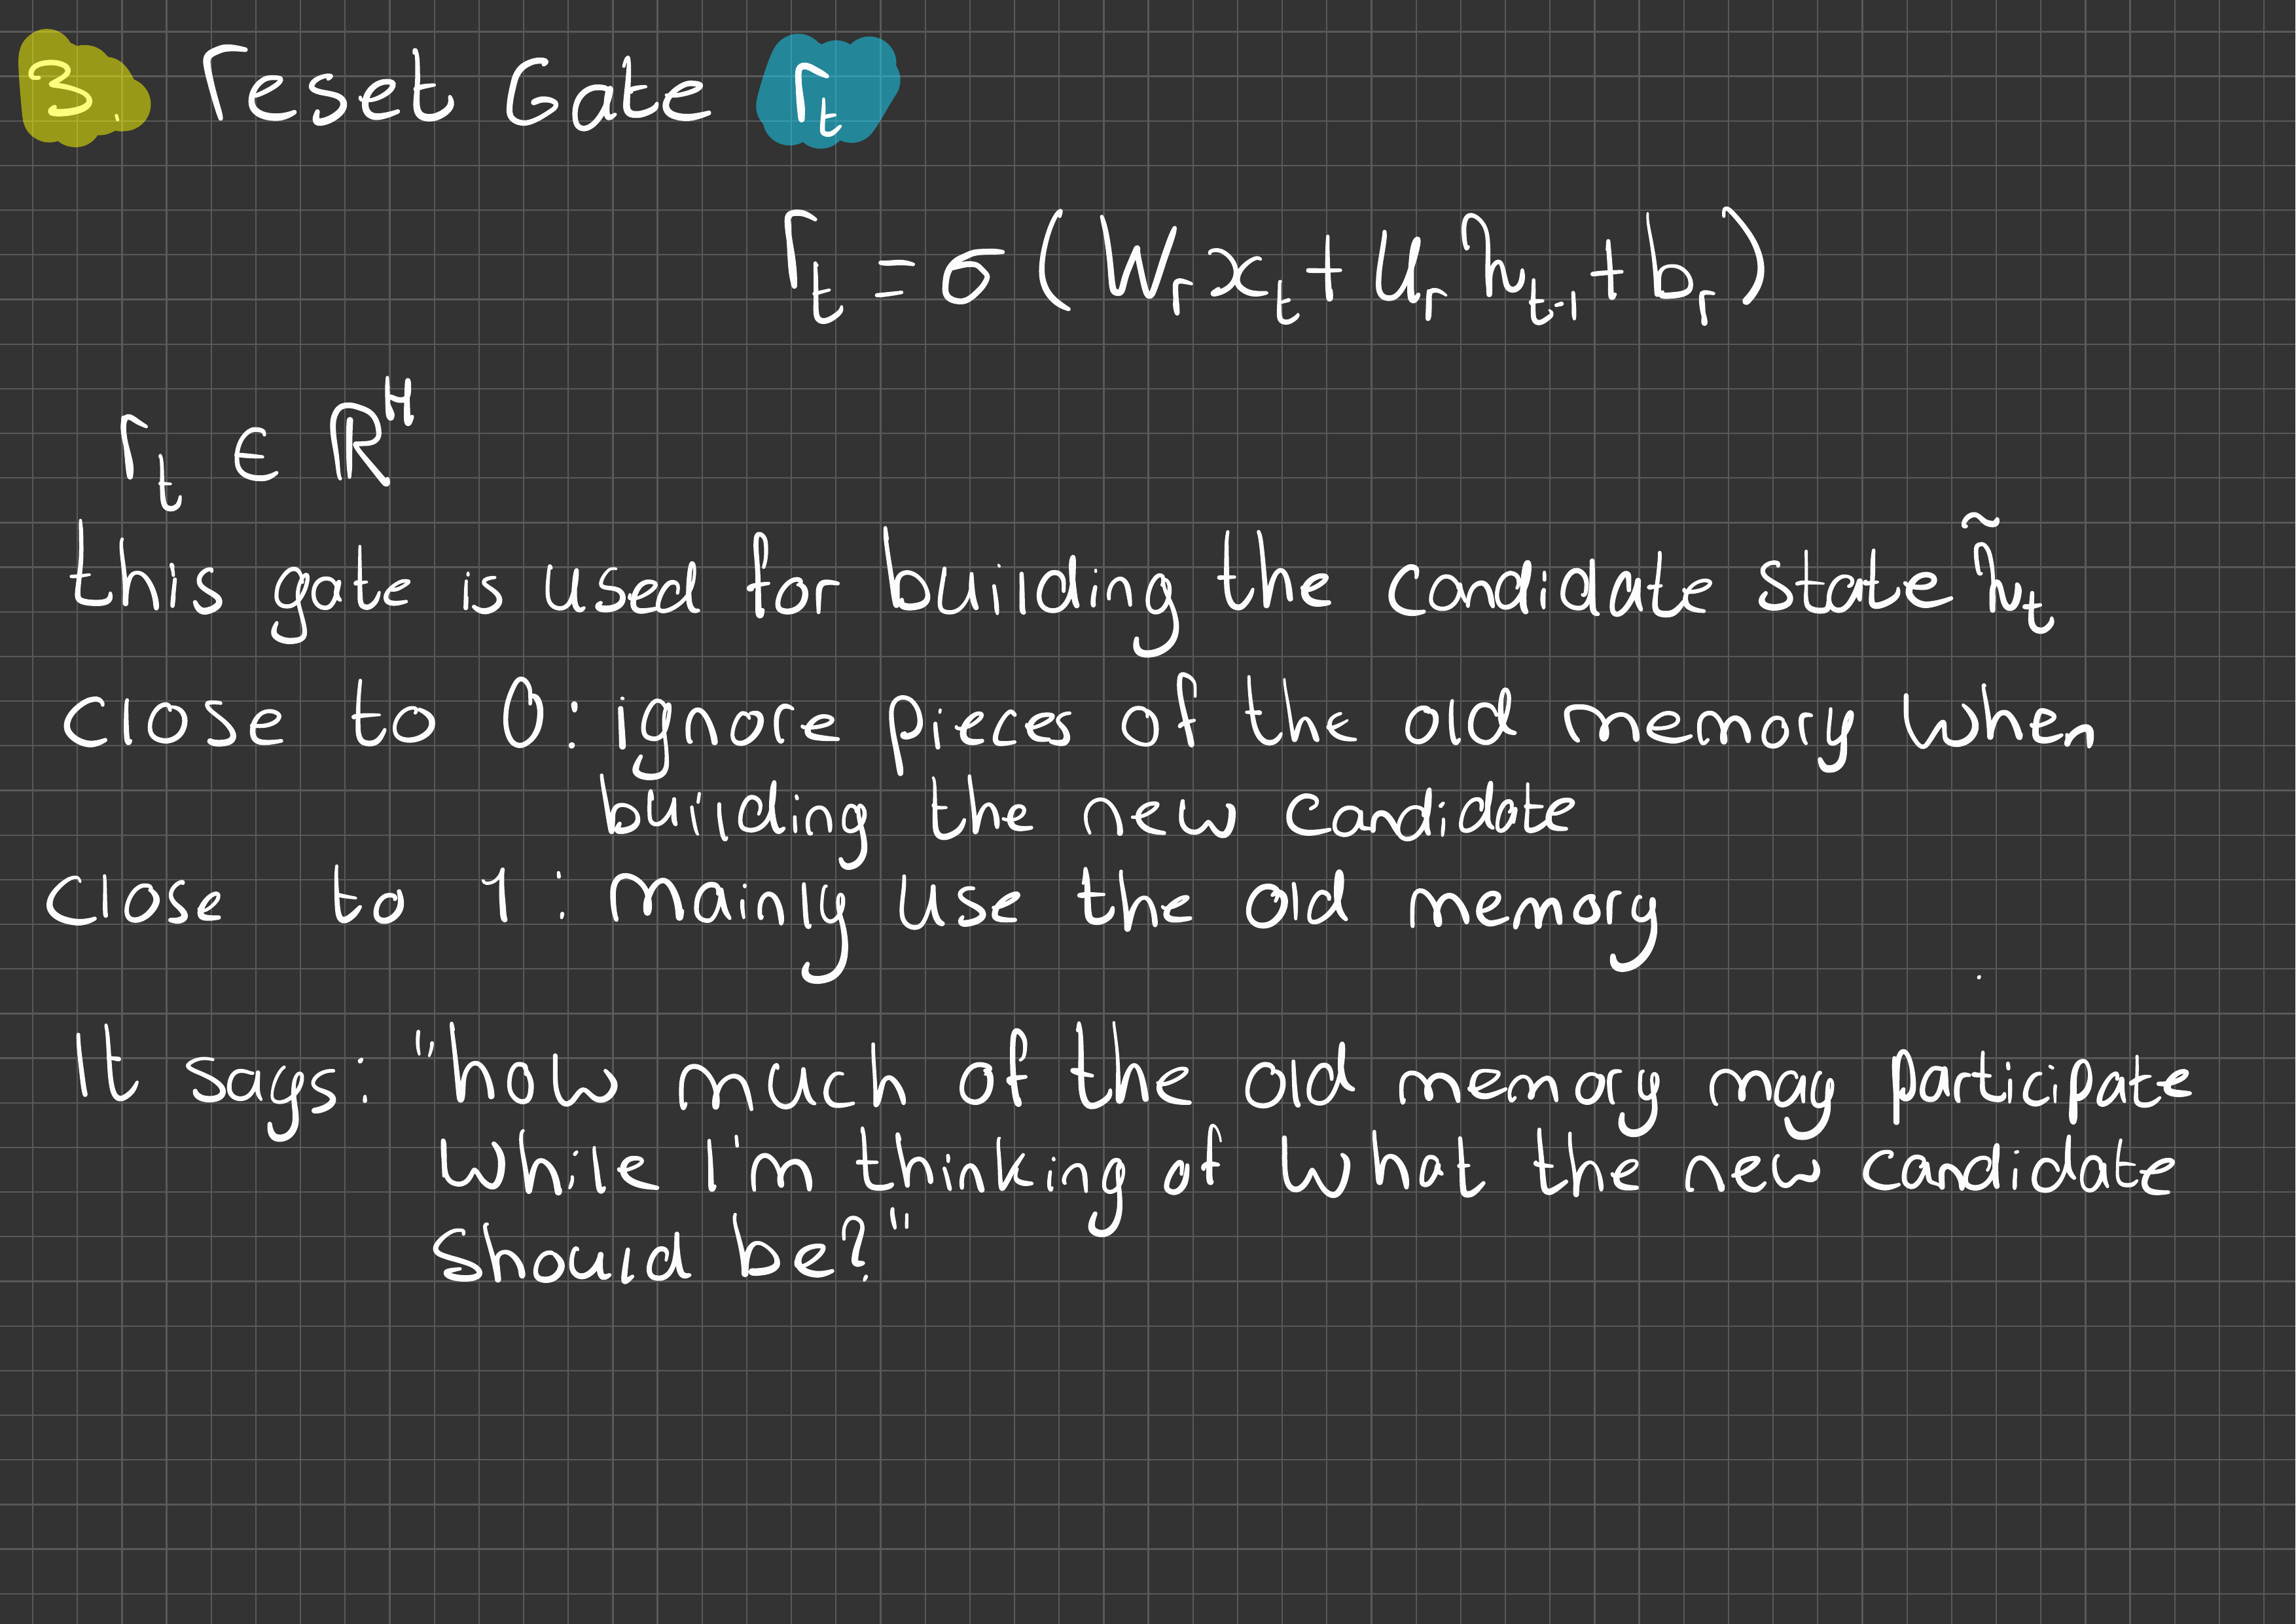 3. reset Gate r_t
r_t = σ(W_r x_t + U_r h_{t-1} + b_r)
r_t ∈ ℝ^H
this gate is used for building the candidate state h̃_t
close to 0: ignore pieces of the old memory when
building the new candidate
close to 1: mainly use the old memory
It says: "how much of the old memory may participate
while I'm thinking of what the new candidate
should be?"